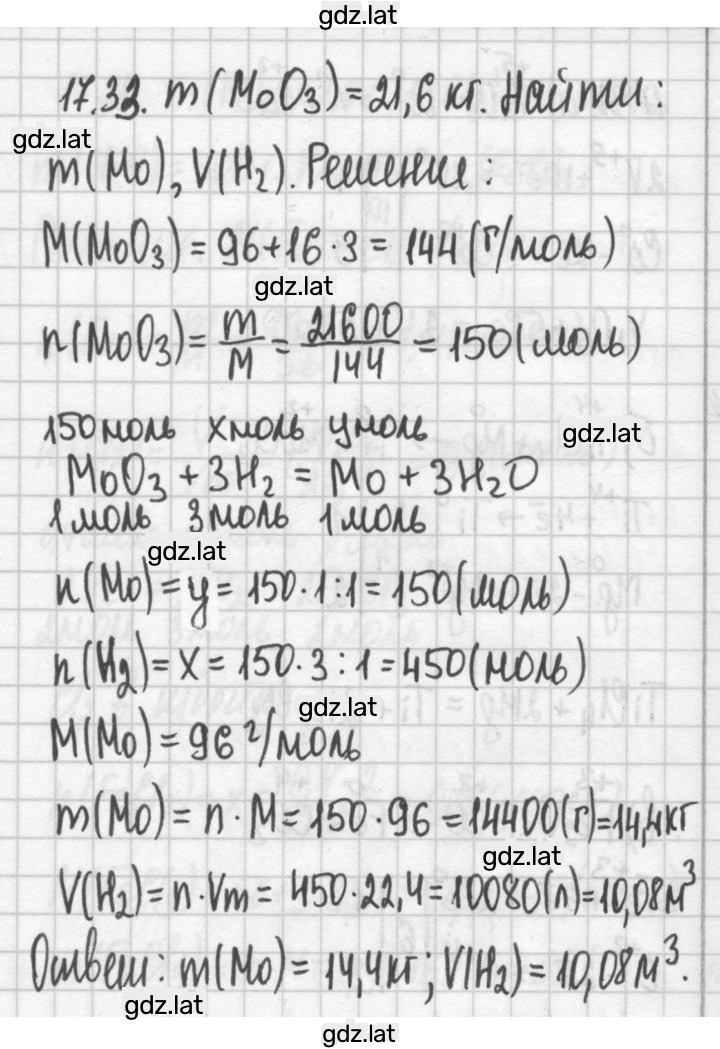 gdz.lat
17.33. m(MoO₃)=21,6 кг. Найти:
gdz.lat
m(Mo), V(H₂). Решение:
M(MoO₃)=96+16·3=144(г/моль)
gdz.lat
n(MoO₃)=m/M=21600/144=150(моль)
150моль xмоль yмоль
gdz.lat
MoO₃+3H₂=Mo+3H₂O
1моль 3моль 1моль
gdz.lat
n(Mo)=y=150·1:1=150(моль)
n(H₂)=x=150·3:1=450(моль)
gdz.lat
M(Mo)=96г/моль
m(Mo)=n·M=150·96=14400(г)=14,4кг
gdz.lat
V(H₂)=n·Vm=450·22,4=10080(л)=10,08м³
Ответ: m(Mo)=14,4кг; V(H₂)=10,08м³.
gdz.lat
gdz.lat